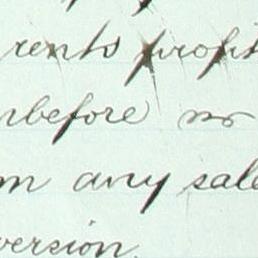 rents profit
nbefore or
m any sale
version